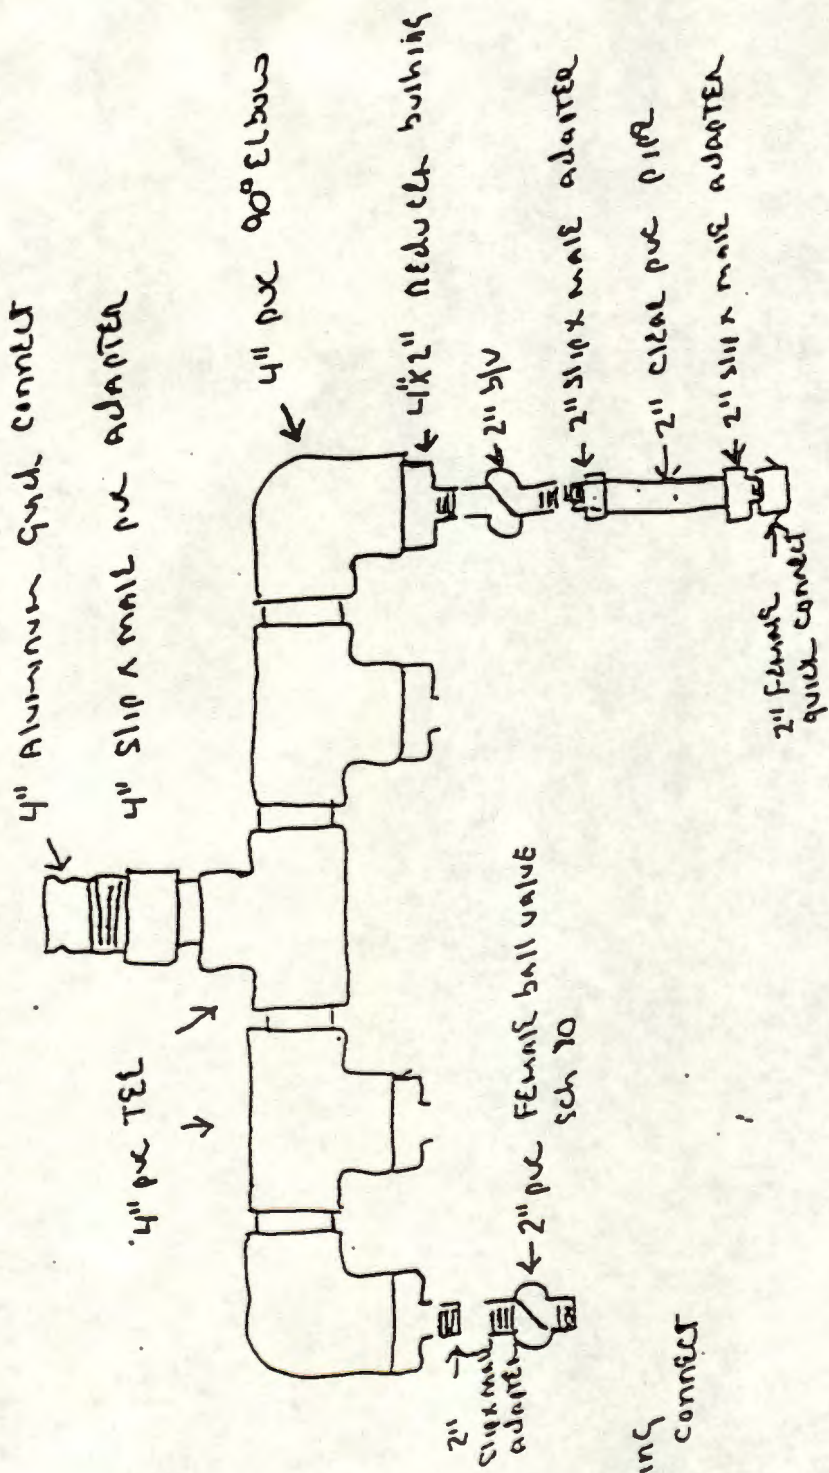 4" Aluminum quick connect
4" Slip x male pvc adapter
4" pvc 90° Elbow
4" pvc TEE
4"x2" reducer bushing
2" b/v
2" slip x male adapter
2" clear pvc pipe
2" slip x male adapter
2" Female
quick connect
2" pvc Female ball valve
2"
slip x male
adapter
connect